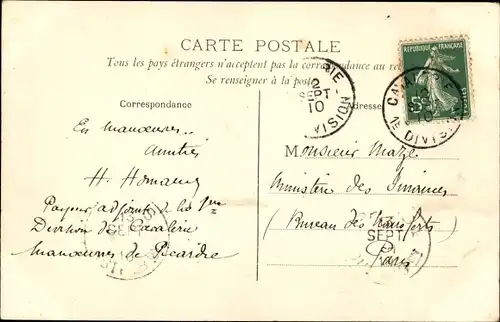 CARTE POSTALE
Tous les pays étrangers n'acceptent pas la correspondance au
Se renseigner à la poste
RÉPUBLIQUE FRANÇAISE
5c
POSTES
CAVALERIE
1e DIVISION
SEPT
10
Correspondance
Adresse
En manœuvres..
Amitiés
H.
Payeur adjoint à la 1ère
Division de Cavalerie
Manœuvres de Picardie
Monsieur Maze
Ministère des Finances
(Bureau des transferts)
Paris
SEPT